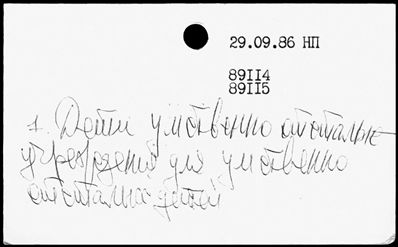 29.09.86 НП
89114
89115
1. Дети умственно отсталые
учреждений для умственно
отсталых детей